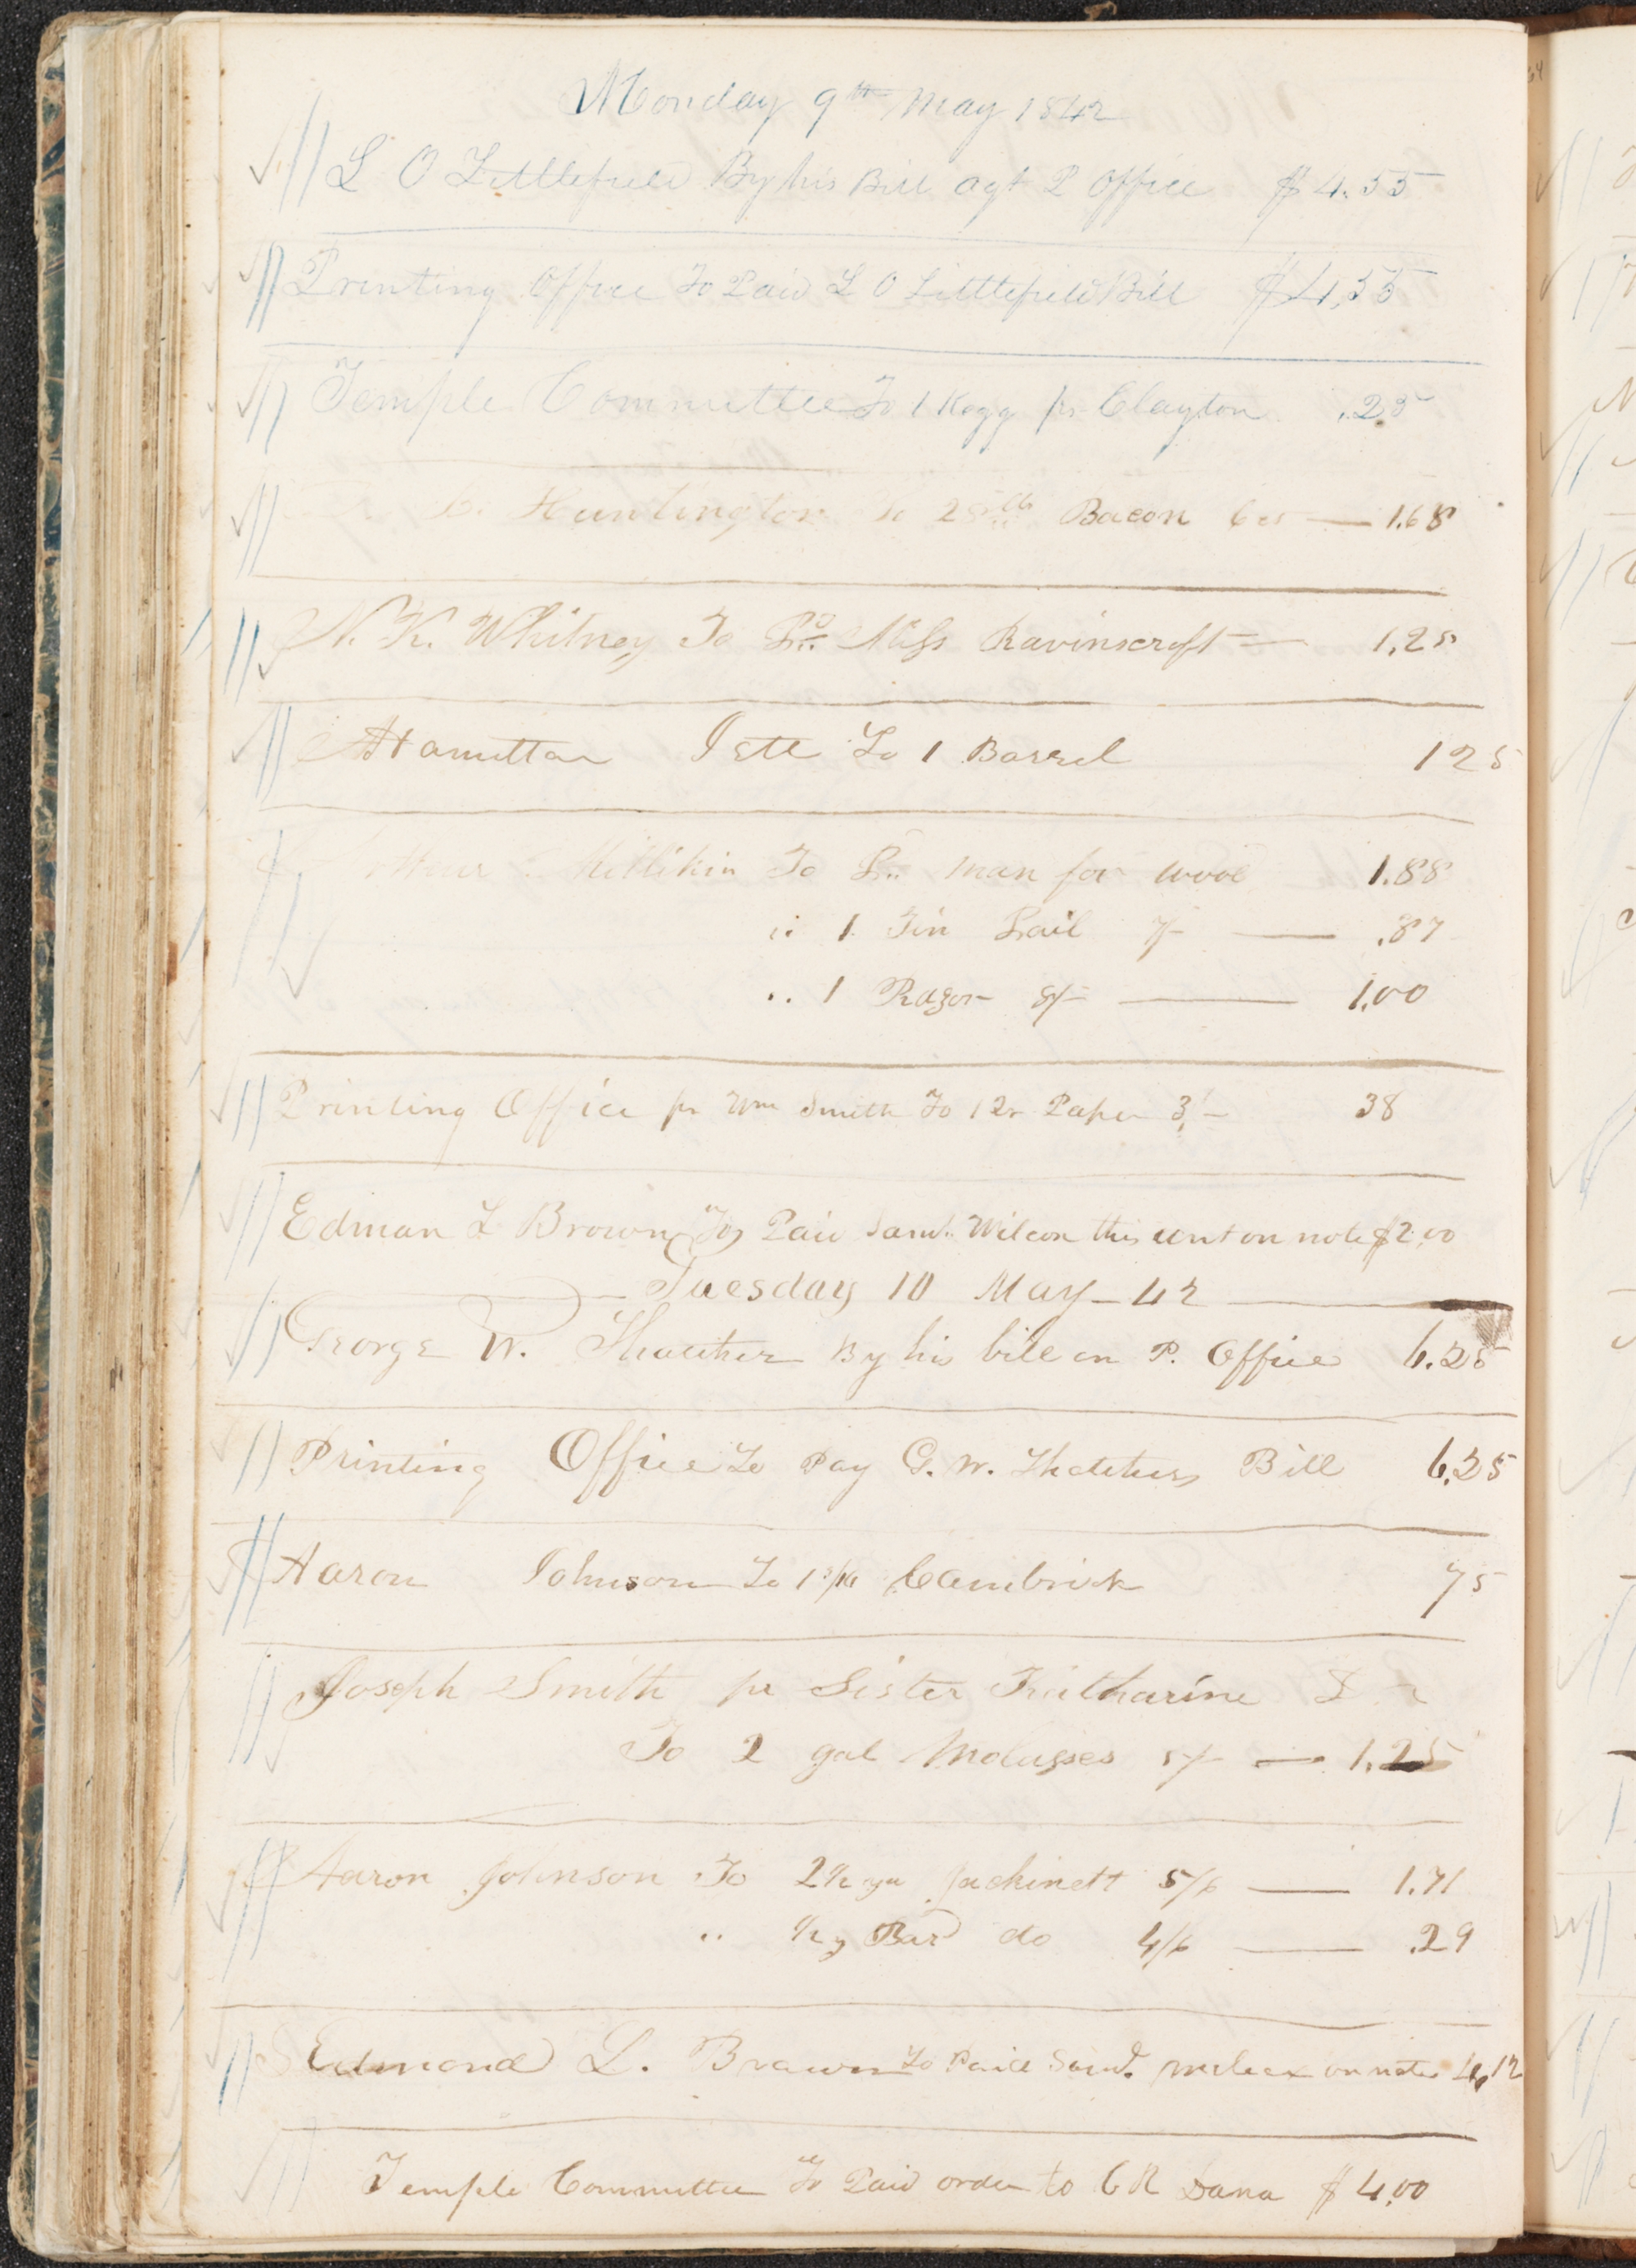 Monday 9th May 1842
L O Littlefield By his Bill agt P Office $4.55
Printing Office To Paid L O Littlefield Bill $4,55
Temple Committee To 1 Kegg pr Clayton .25
Huntington To 28 lb Bacon 6 cts — 1.68
N. K. Whitney To Pd Miss Ravinscroft — 1,25
Hamilton To 1 Barrel 125
Millikin To Pd man for wood 1.88
" 1 Tin Pail 7/- — .87
" 1 Razor 8/- — 1,00
Printing Office pr Wm Smith To 1 Qr Paper 3/- 38
Edman L Brown To Paid Saml. Wilcox this amt on note $2.00
Tuesday 10 May - 42
George W. Thatcher By his bill on P. Office 6.25
Printing Office To Pay G. W. Thatchers Bill 6,25
Aaron Johnson To Cambrick 75
Joseph Smith pr Sister Katharine S
To 2 gal Molasses 5/- — 1.25
Aaron Johnson To 2½ yd Jackinett 5/6 — 1.71
" ½ y Bar'd do 4/6 — .29
Edmond L. Brown To Paid Saml. on note 4,12
Temple Committee To Paid order to C R Dana $4,00